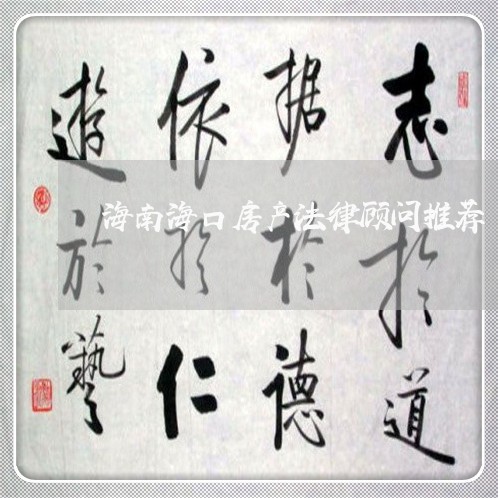 志於道
据於德
依於仁
遊於藝
海南海口房产法律顾问推荐